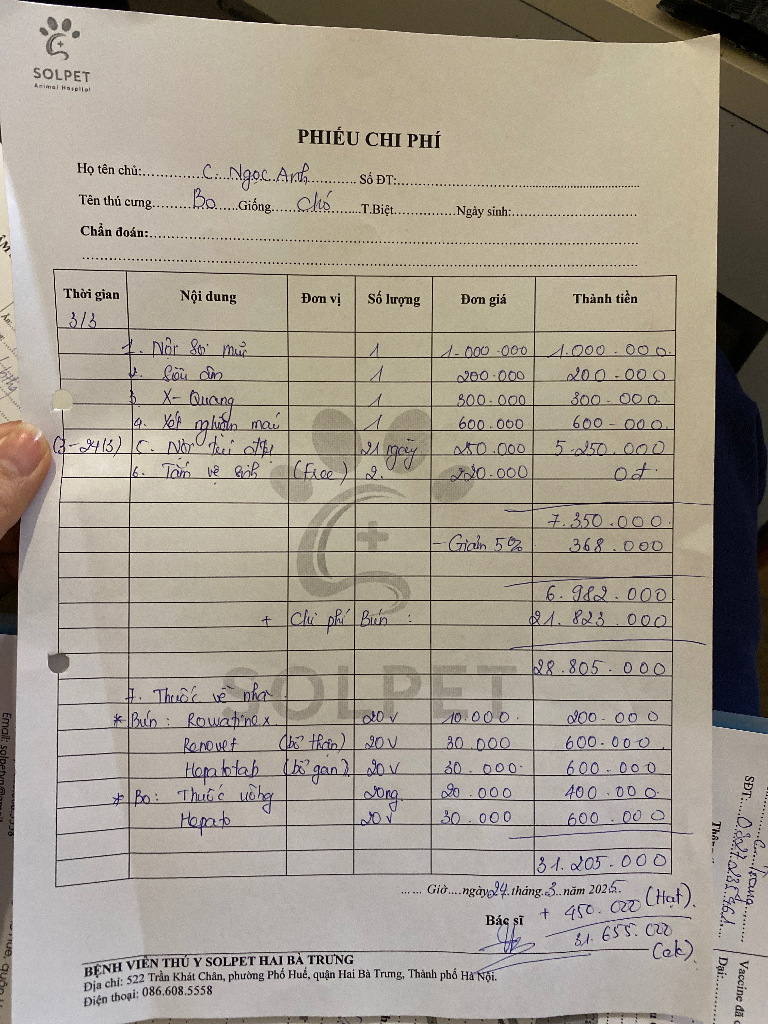 SOLPET
Animal Hospital
PHIẾU CHI PHÍ
Họ tên chủ: C. Ngọc Anh Số ĐT:
Tên thú cưng Bo Giống Chó T.Biệt Ngày sinh:
Chẩn đoán:
Thời gian Nội dung Đơn vị Số lượng Đơn giá Thành tiền
3/3
1. Nội soi mũi 1 1.000.000 1.000.000
2. Siêu âm 1 200.000 200.000
3 X-Quang 1 300.000 300.000
4. Xét nghiệm máu 1 600.000 600.000
(3-24/3) 5. Nội trú 21 ngày 250.000 5.250.000
6. Tắm vệ sinh (Free) 2. 220.000 0đ
7.350.000
- Giảm 5% 368.000
6.982.000
+ Chi phí Bún: 21.823.000
28.805.000
7. Thuốc về nhà.
* Bún: Rowatinex 20v 10.000 200.000
Renovet (bổ thận) 20v 30.000 600.000
Hepatotab (bổ gan) 20v 30.000 600.000
* Bo: Thuốc uống 20ng 20.000 400.000
Hepato 20v 30.000 600.000
31.205.000
Giờ ngày 24 tháng 3 năm 2025.
Bác sĩ + 450.000 (Hạt).
31.655.000
(ck).
BỆNH VIỆN THÚ Y SOLPET HAI BÀ TRƯNG
Địa chỉ: 522 Trần Khát Chân, phường Phố Huế, quận Hai Bà Trưng, Thành phố Hà Nội.
Điện thoại: 086.608.5558
SOLPET
SĐT:
Vaccine đã
Dại: